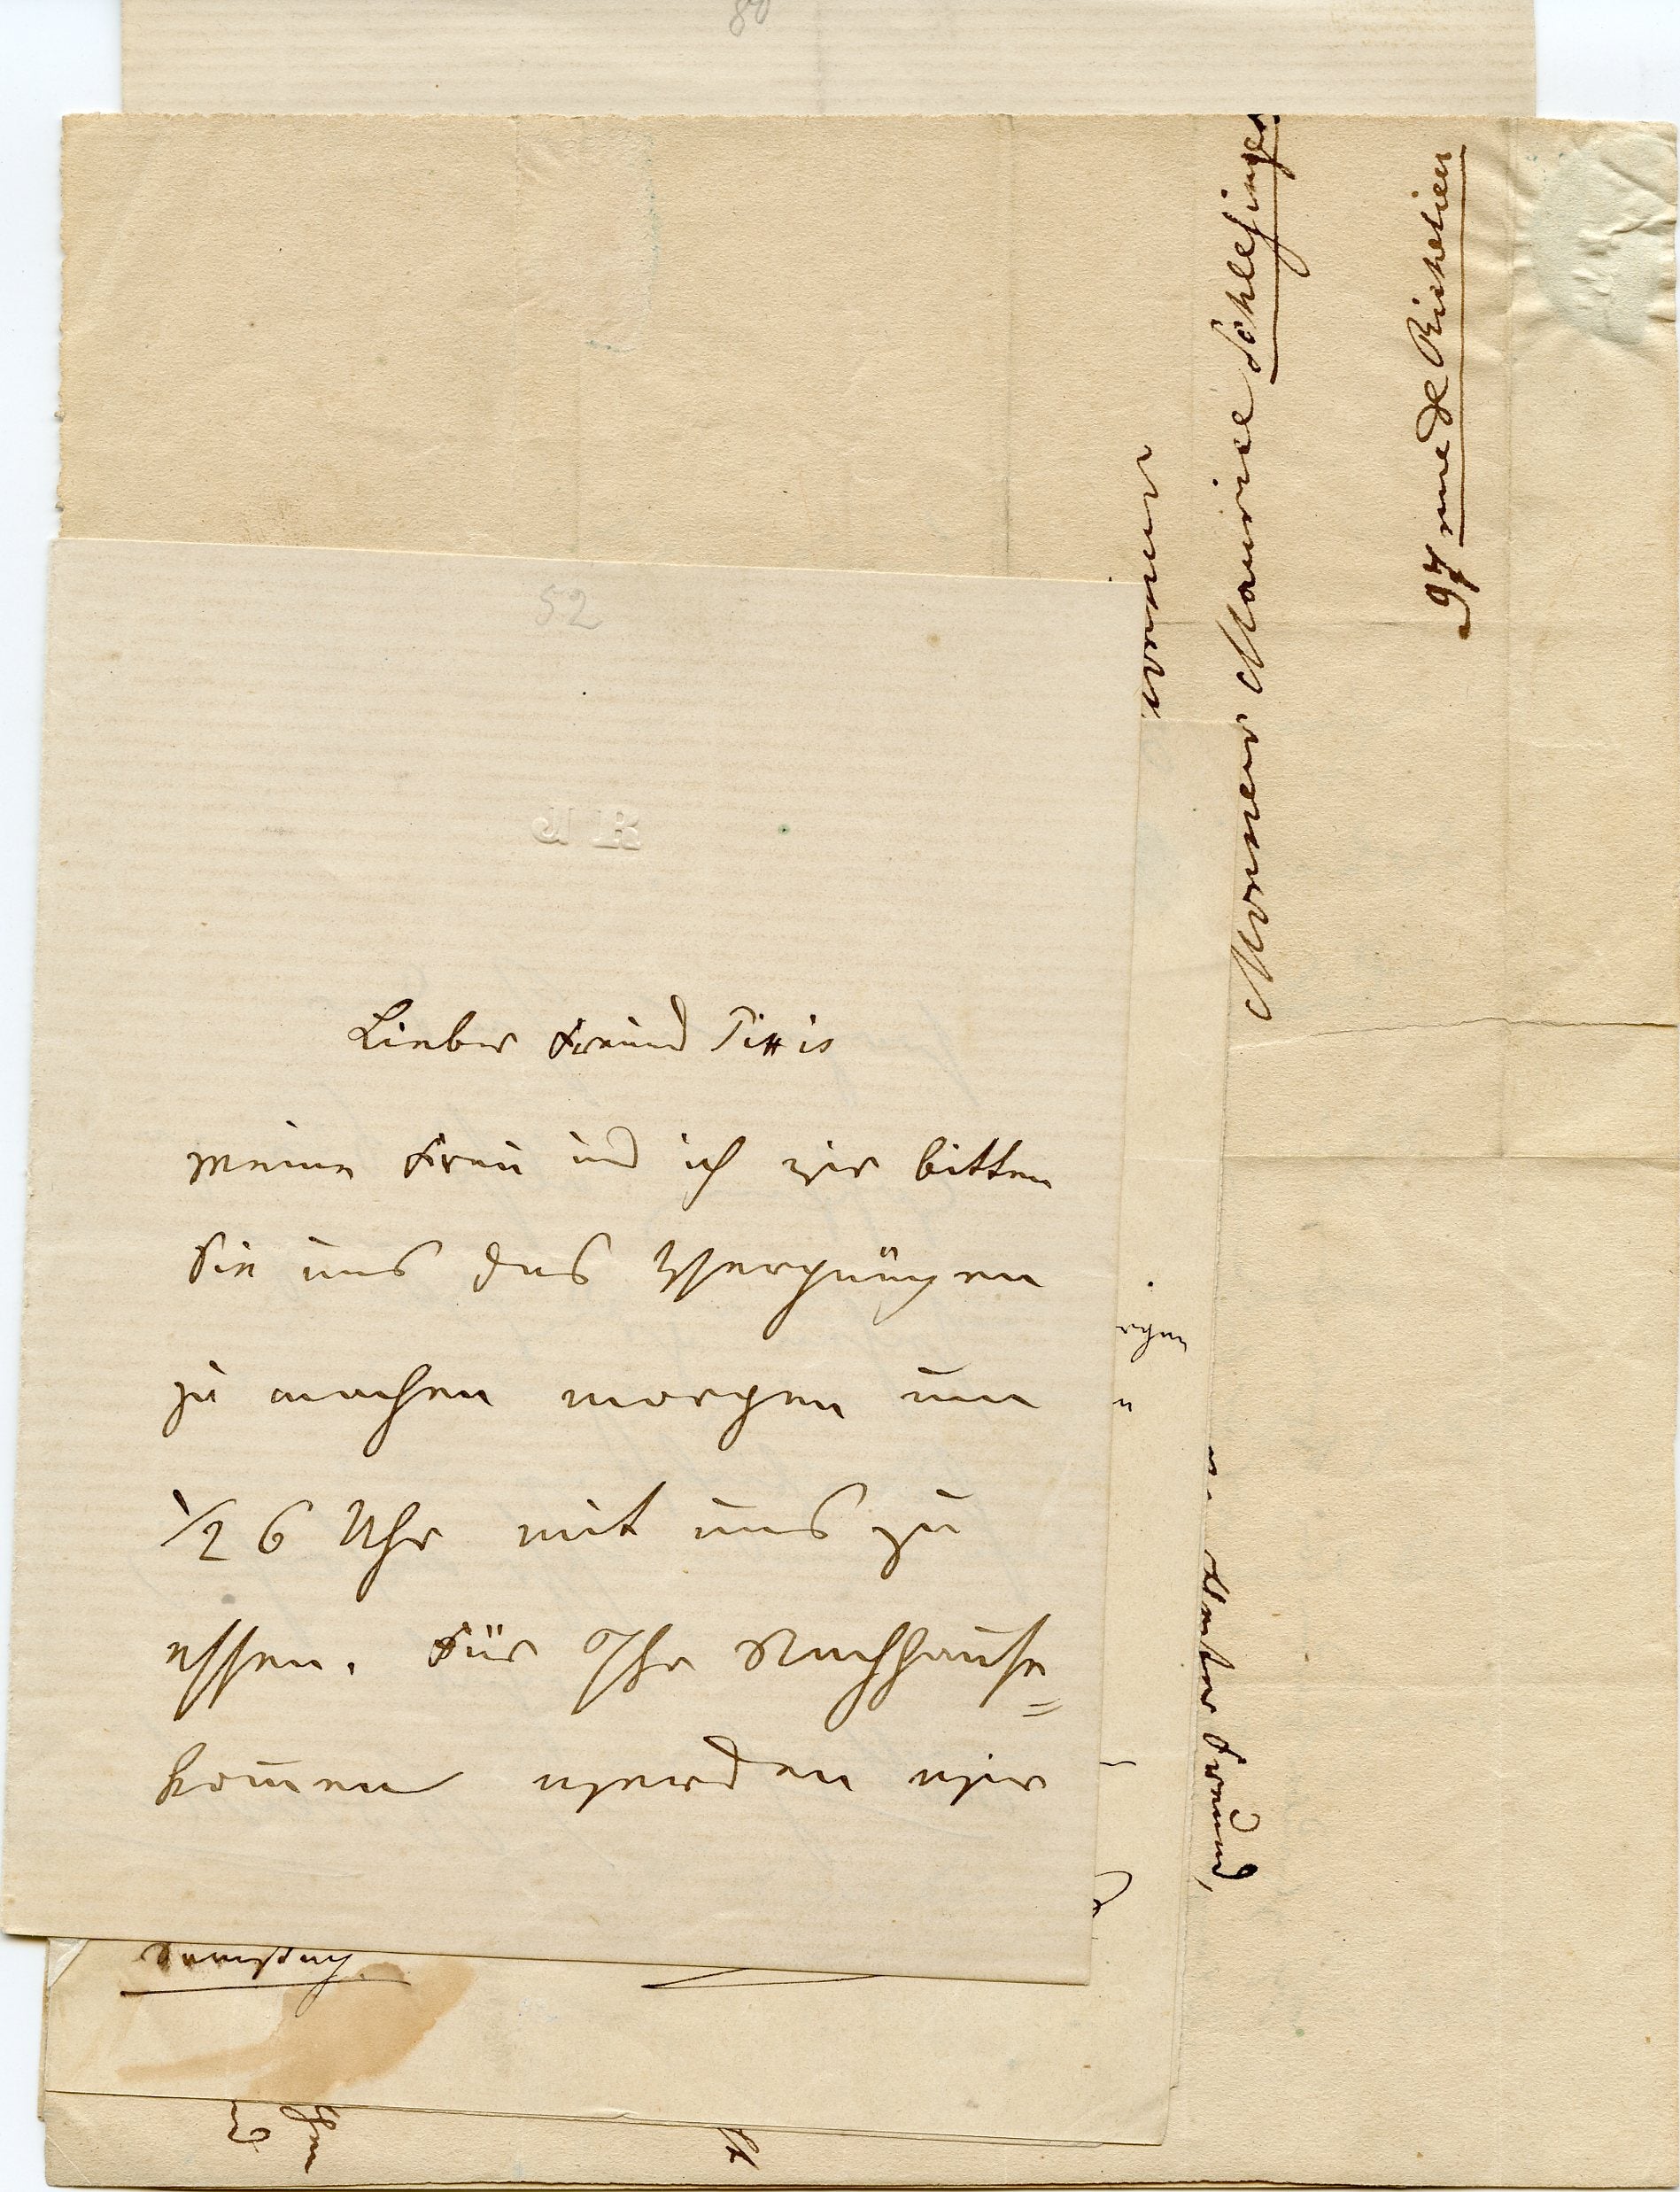 80
52
Lieber Freund Pixis
meine Frau und ich wir bitten
Sie uns das Vergnügen
zu machen morgen um
1/2 6 Uhr mit uns zu
essen. Für Ihr Nachhause=
kom̅en werden wir
Monsieur Maurice Schlesinger
97 rue de Richelieu
rgen
n
Freund,
Samstag